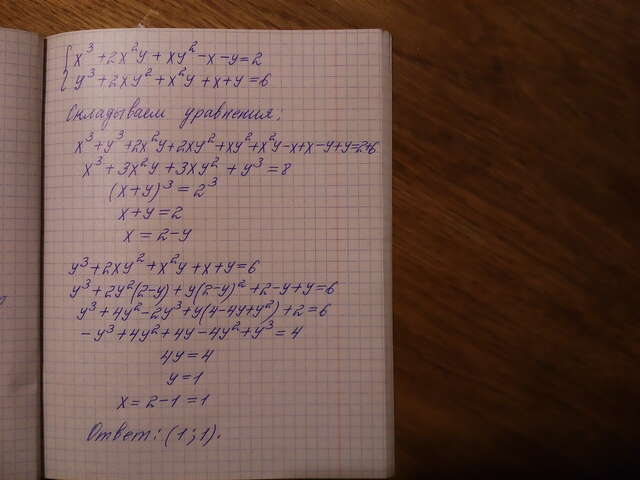 x³+2x²y+xy²-x-y=2
y³+2xy²+x²y+x+y=6
Складываем уравнения:
x³+y³+2x²y+2xy²+xy²+x²y-x+x-y+y=2+6
x³+3x²y+3xy²+y³=8
(x+y)³=2³
x+y=2
x=2-y
y³+2xy²+x²y+x+y=6
y³+2y²(2-y)+y(2-y)²+2-y+y=6
y³+4y²-2y³+y(4-4y+y²)+2=6
-y³+4y²+4y-4y²+y³=4
4y=4
y=1
x=2-1=1
Ответ: (1;1).